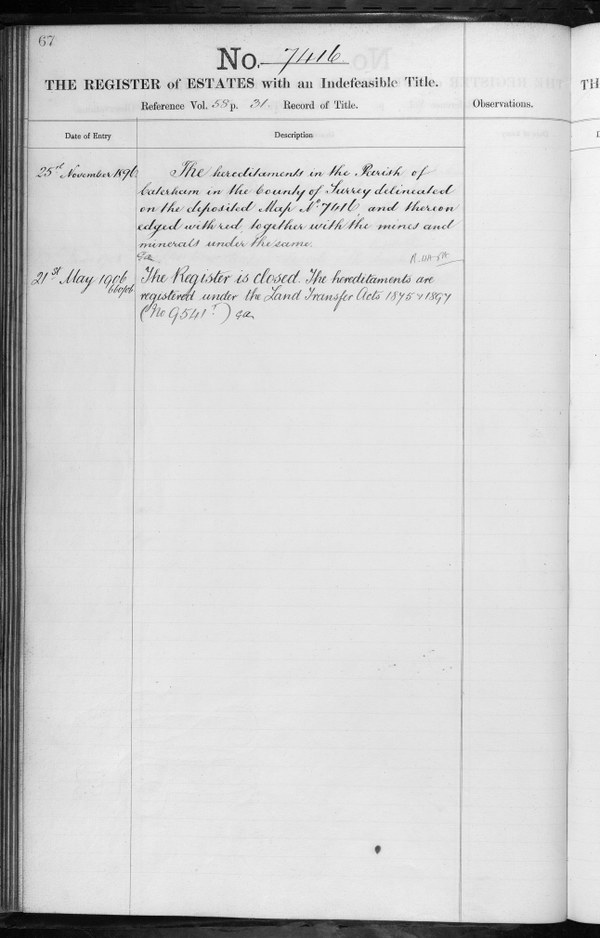 67
No. 7416
THE REGISTER of ESTATES with an Indefeasible Title.
Reference Vol. 58 p. 31. Record of Title.
Observations.
Date of Entry
Description
25th November 1896
The hereditaments in the Parish of
Caterham in the County of Surrey delineated
on the deposited Map No. 7416, and thereon
edged with red, together with the mines and
minerals under the same.
21st May 1906
The Register is closed. The hereditaments are
registered under the Land Transfer Acts 1875 & 1897
(No 9541)
TH